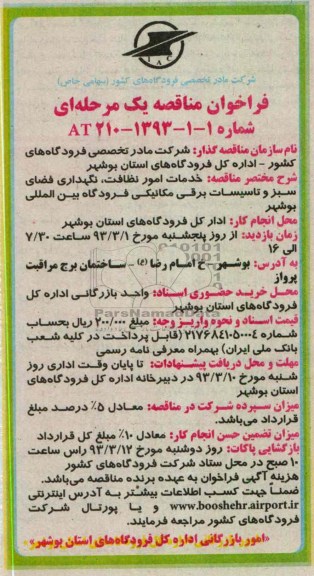 IAC
شرکت مادر تخصصی فرودگاههای کشور (سهامی خاص)
فراخوان مناقصه یک مرحله‌ای
شماره ۱-۱-۱۳۹۳-۲۱۰ AT
نام سازمان مناقصه گذار: شرکت مادر تخصصی فرودگاه‌های
کشور - اداره کل فرودگاه‌های استان بوشهر
شرح مختصر مناقصه: خدمات امور نظافت، نگهداری فضای
سبز و تاسیسات برقی مکانیکی فرودگاه بین المللی
بوشهر
محل انجام کار: ادار کل فرودگاه‌های استان بوشهر
زمان بازدید: از روز پنجشنبه مورخ ۹۳/۳/۱ ساعت ۷/۳۰
الی ۱۶
به آدرس: بوشهر - خ امام رضا (ع) - ساختمان برج مراقبت
پرواز
محل خرید حضوری اسناد: واحد بازرگانی اداره کل
فرودگاه‌های استان بوشهر
قیمت اسناد و نحوه واریز وجه: مبلغ ۲۰۰/۰۰۰ ریال بحساب
شماره ۲۱۷۶۸۴۱۰۵۰۰۰۴ (قابل پرداخت در کلیه شعب
بانک ملی ایران) بهمراه معرفی نامه رسمی
مهلت و محل دریافت پیشنهادات: تا پایان وقت اداری روز
شنبه مورخ ۹۳/۳/۱۰ در دبیرخانه اداره کل فرودگاه‌های
استان بوشهر
میزان سپرده شرکت در مناقصه: معادل ۵٪ درصد مبلغ
قرارداد می‌باشد.
میزان تضمین حسن انجام کار: معادل ۱۰٪ مبلغ کل قرارداد
بازگشایی پاکات: روز دوشنبه مورخ ۹۳/۳/۱۲ راس ساعت
۱۰ صبح در محل ستاد شرکت فرودگاه‌های کشور
هزینه آگهی فراخوان به عهده برنده مناقصه می‌باشد.
ضمناً جهت کسب اطلاعات بیشتر به آدرس اینترنتی
www.booshehr.airport.ir و یا پورتال شرکت
فرودگاه‌های کشور مراجعه فرمایند.
«امور بازرگانی اداره کل فرودگاه‌های استان بوشهر»